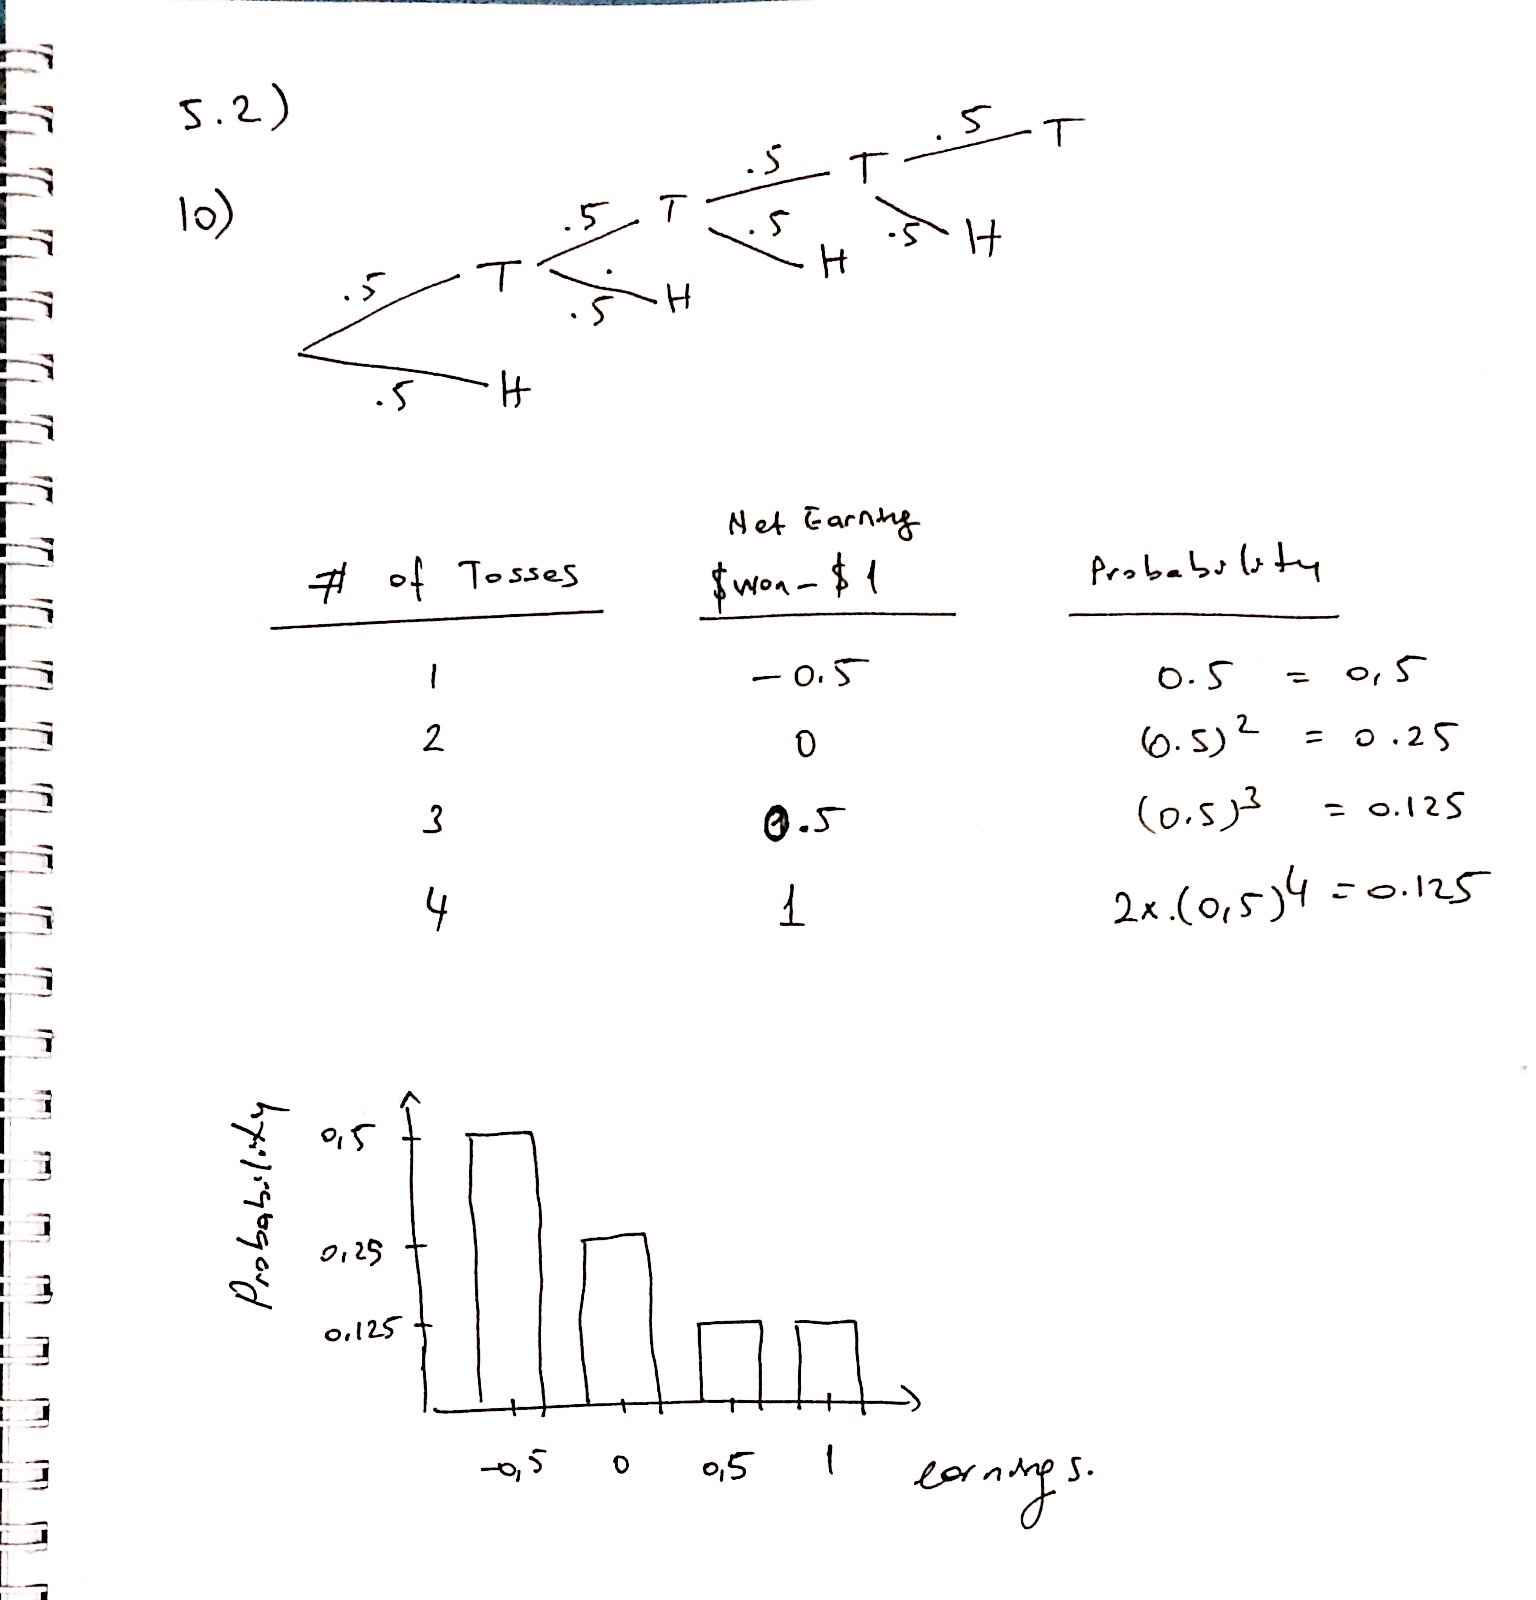 5.2)
10)
.5 T
.5 T
.5 T
.5 T
.5 H
.5 H
.5 H
.5 H
Net Earning
# of Tosses $won-$1 Probability
1 -0.5 0.5 = 0,5
2 0 (0.5)2 = 0.25
3 0.5 (0.5)3 = 0.125
4 1 2x.(0,5)4 = 0.125
Probability
0,5
0,25
0.125
-0,5 0 0,5 1 earnings.